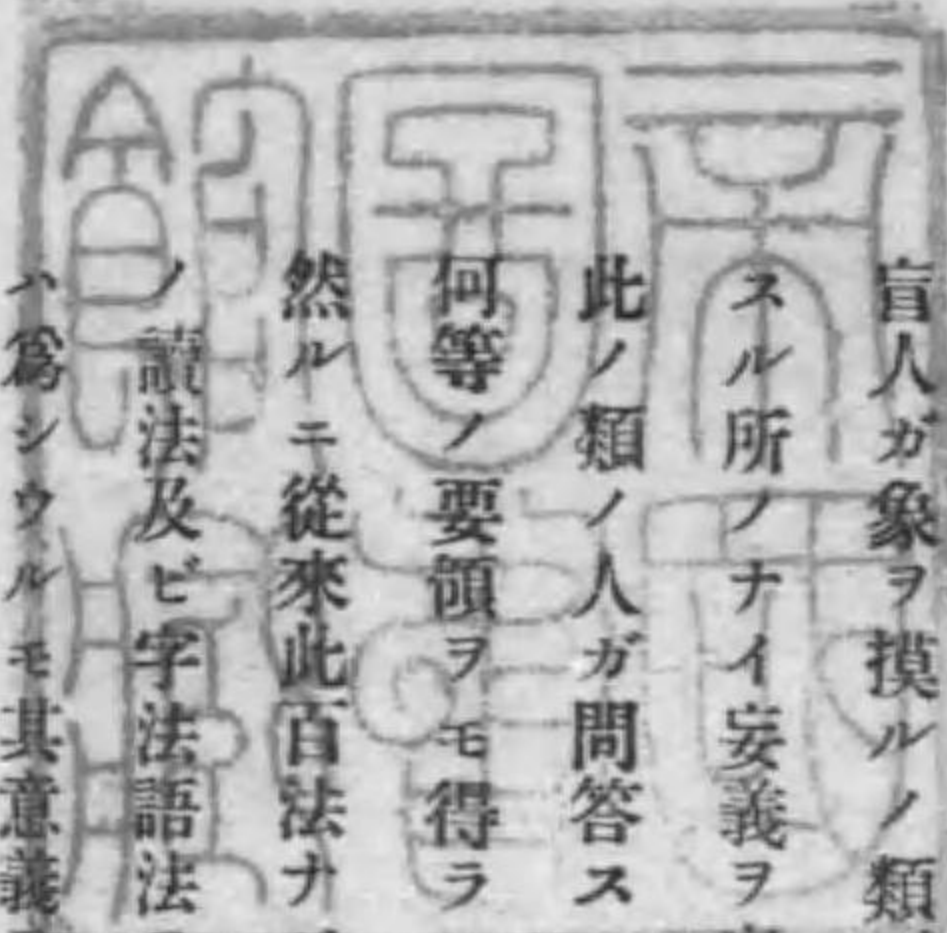 盲人ガ象ヲ摸ルノ類
スル所ノナイ妄義ヲ
此ノ類ノ人ガ問答ス
何等ノ要領ヲモ得ラ
然ルニ從來此百法ナ
ノ讀法及ビ字法語法
ハ爲シウルモ其意義
帝國
圖
館